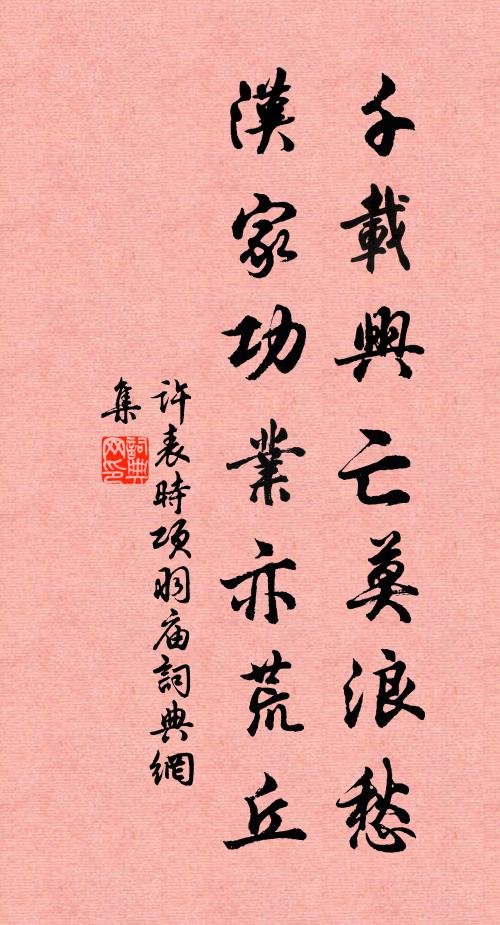 千載興亡莫浪愁
漢家功業亦荒丘
許表時項羽庙詞典網
集
詞典
网印